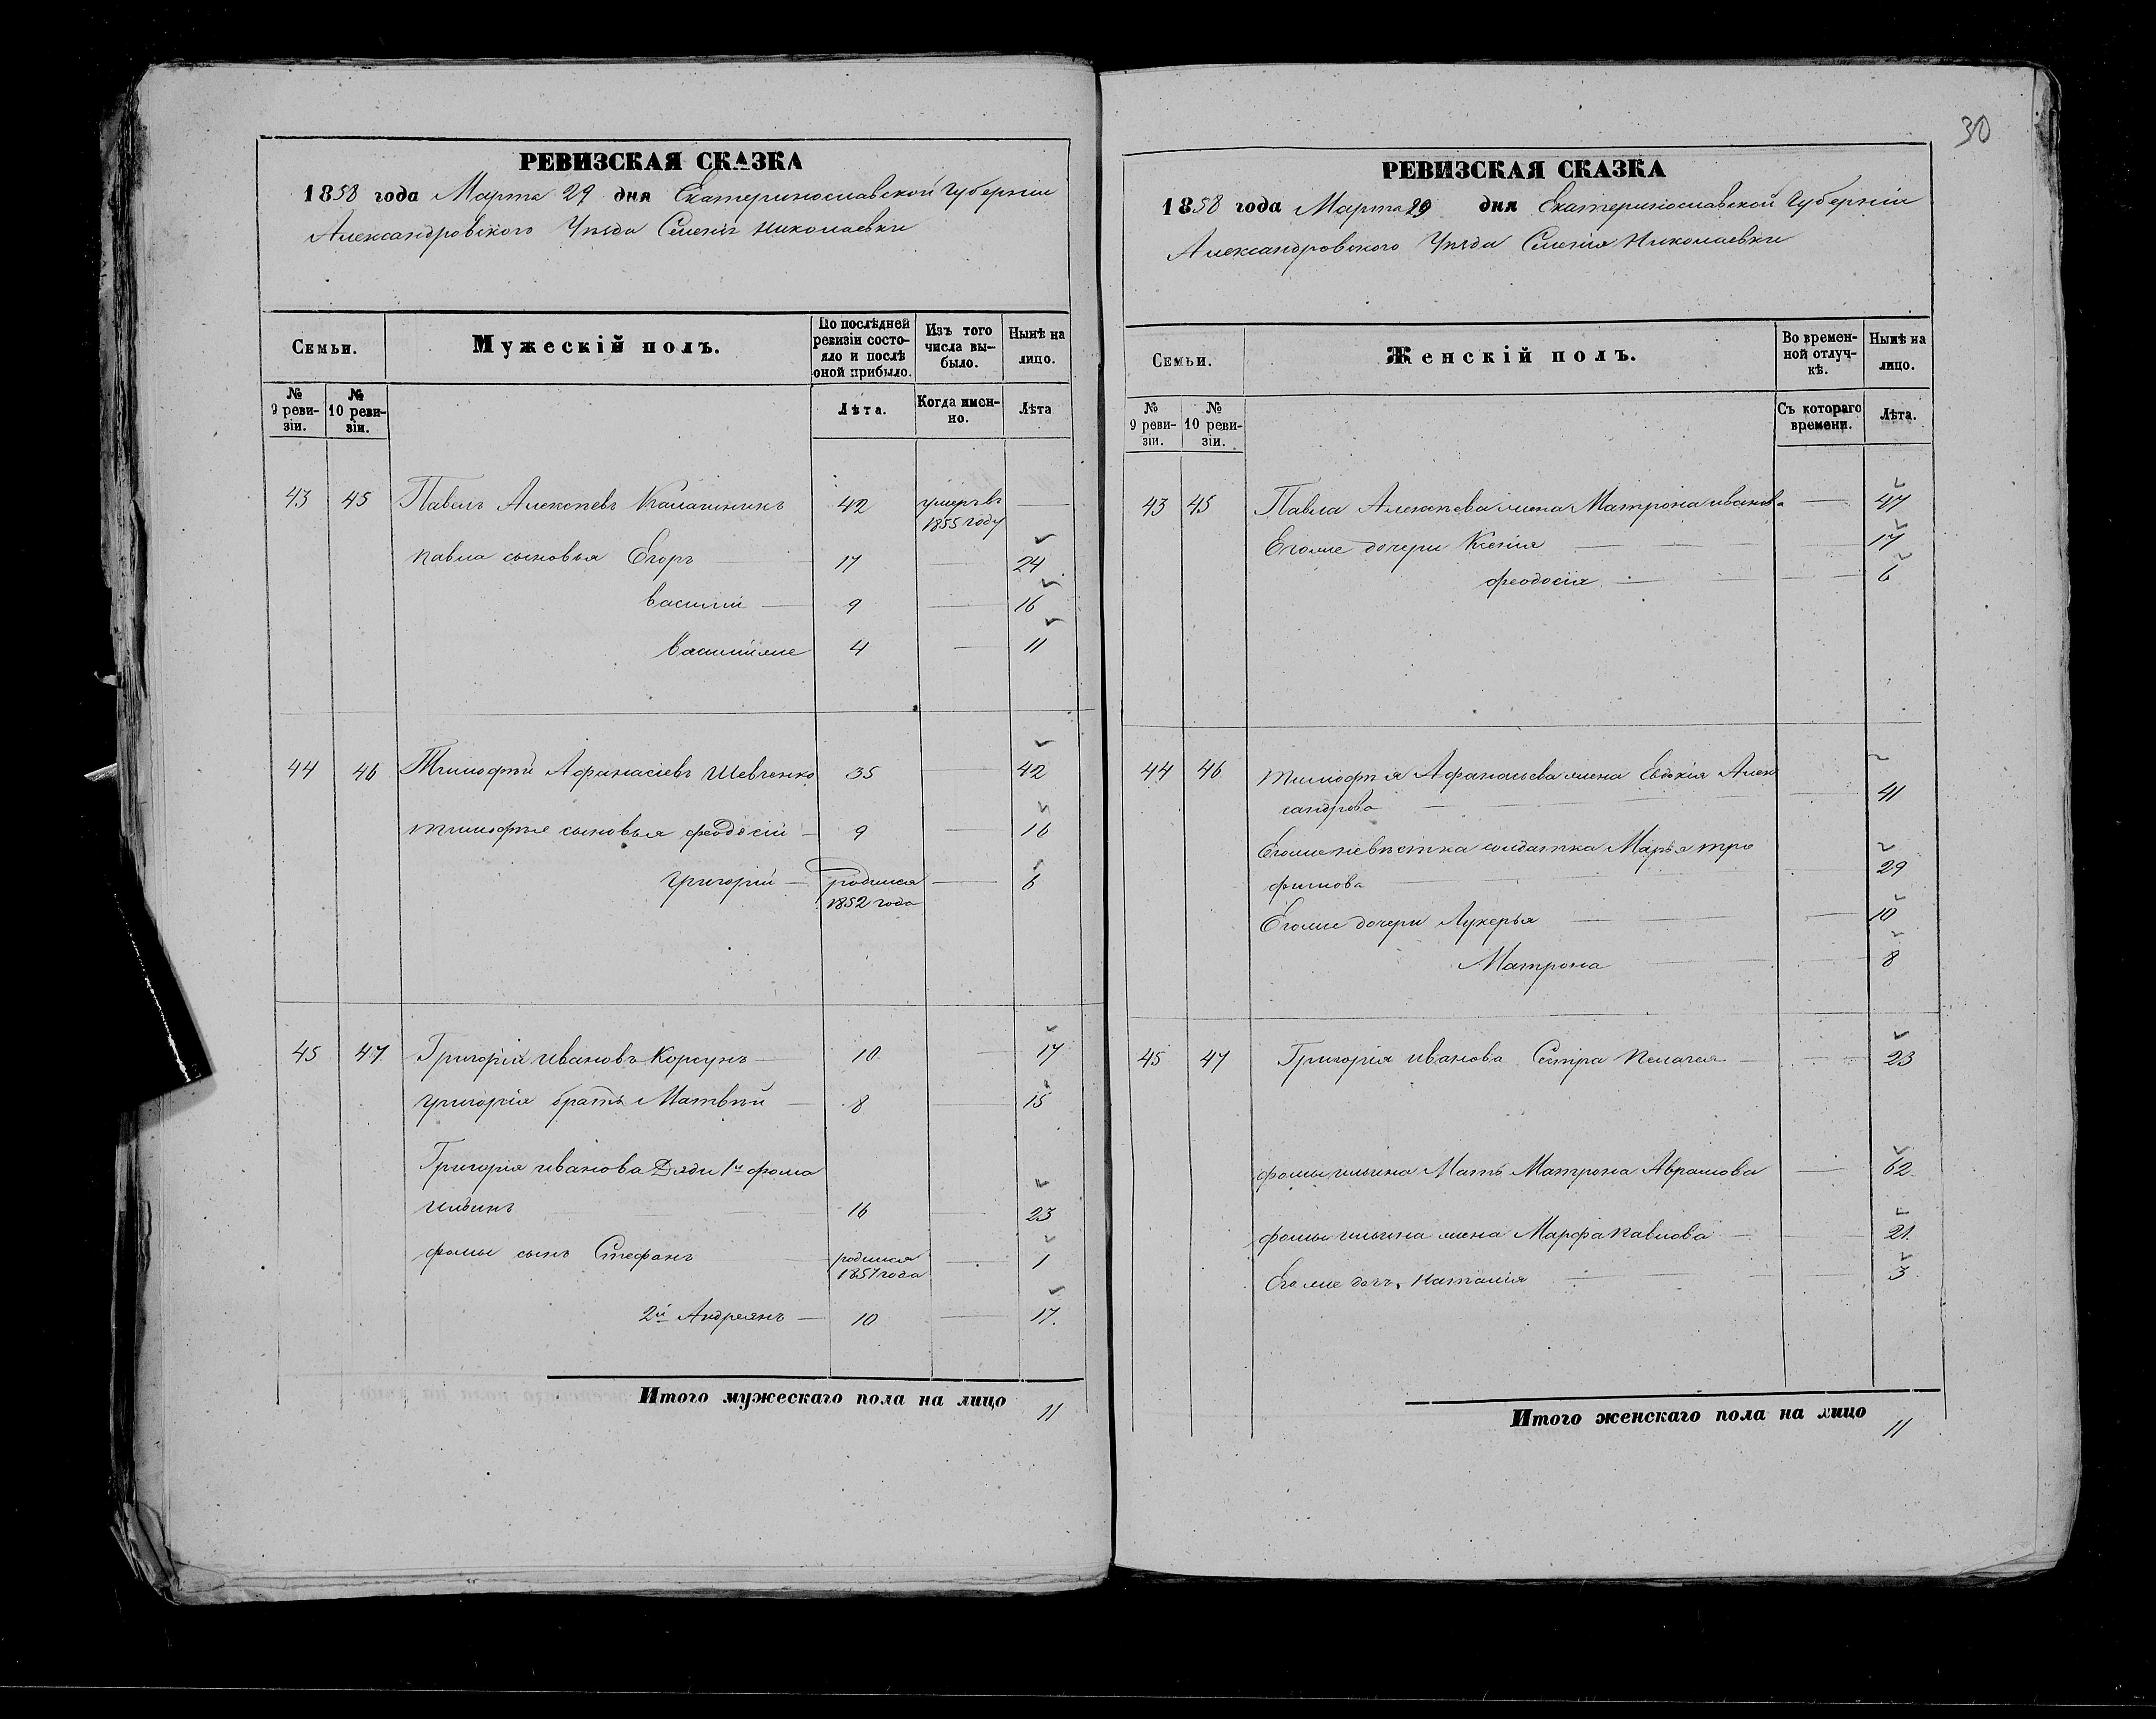 30
РЕВИЗСКАЯ СКАЗКА
1858 года Марта 29 дня Екатеринославской Губерніи
Александровского Уѣзда Селенія Николаевки
Семьи. Мужескій полъ. По послѣдней ревизіи состояло и послѣ оной прибыло. Изъ того числа выбыло. Нынѣ на лицо.
№ 9 ревизіи. № 10 ревизіи. Лѣта. Когда именно. Лѣта
43 45 Павелъ Алексѣевъ 42 умеръ въ 1855 году —
Павла сыновья Егоръ 17 — 24
василій 9 — 16
василій же 4 — 11
44 46 Тимофѣй Афанасіевъ Шевченко 35 — 42
тимофѣя сыновья феодосій 9 — 16
григорій родился 1852 года — 6
45 47 Григорій ивановъ Корсунъ 10 17
григорія братъ Матвѣй 8 — 15
Григорія иванова Дяди 1й фома
ильинъ 16 — 23
фомы сынъ Стефанъ родился 1857 года — 1
2й Андреянъ 10 — 17.
Итого мужескаго пола на лицо 11
РЕВИЗСКАЯ СКАЗКА
1858 года Марта 29 дня Екатеринославской Губерніи
Александровского Уѣзда Селенія Николаевки
Семьи. Женскій полъ. Во временной отлучкѣ. Нынѣ на лицо.
№ 9 ревизіи. № 10 ревизіи. Съ котораго времени. Лѣта.
43 45 Павла Алексѣева жена Матрона иванова — 47
Его же дочери Ксенія — 17
феодосія — 6
44 46 тимофѣя Афанасьева жена Евдокія Алек
сандрова — 41
Его же невѣстка солдатка Марья тро
фимова — 29
Его же дочери Лукерья — 10
Матрона — 8
45 47 Григорія иванова Сестра Пелагея — 23
фомы ильина Мать Матрона Аврамова — 62
фомы ильина жена Марфа павлова — 21.
Его же дочь Наталія — 3
Итого женскаго пола на лицо 11